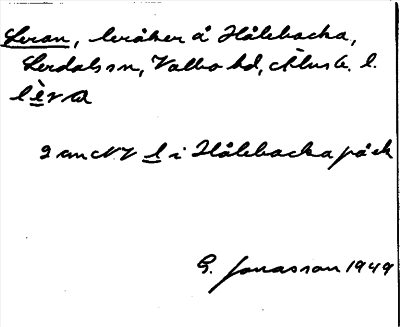 Leran, leråker å Hålebacka,
Lerdals sn, Valbo hd, Älvsb. l.
lèra
2 cm NV l i Hålebacka på ek
G. Jonasson 1949